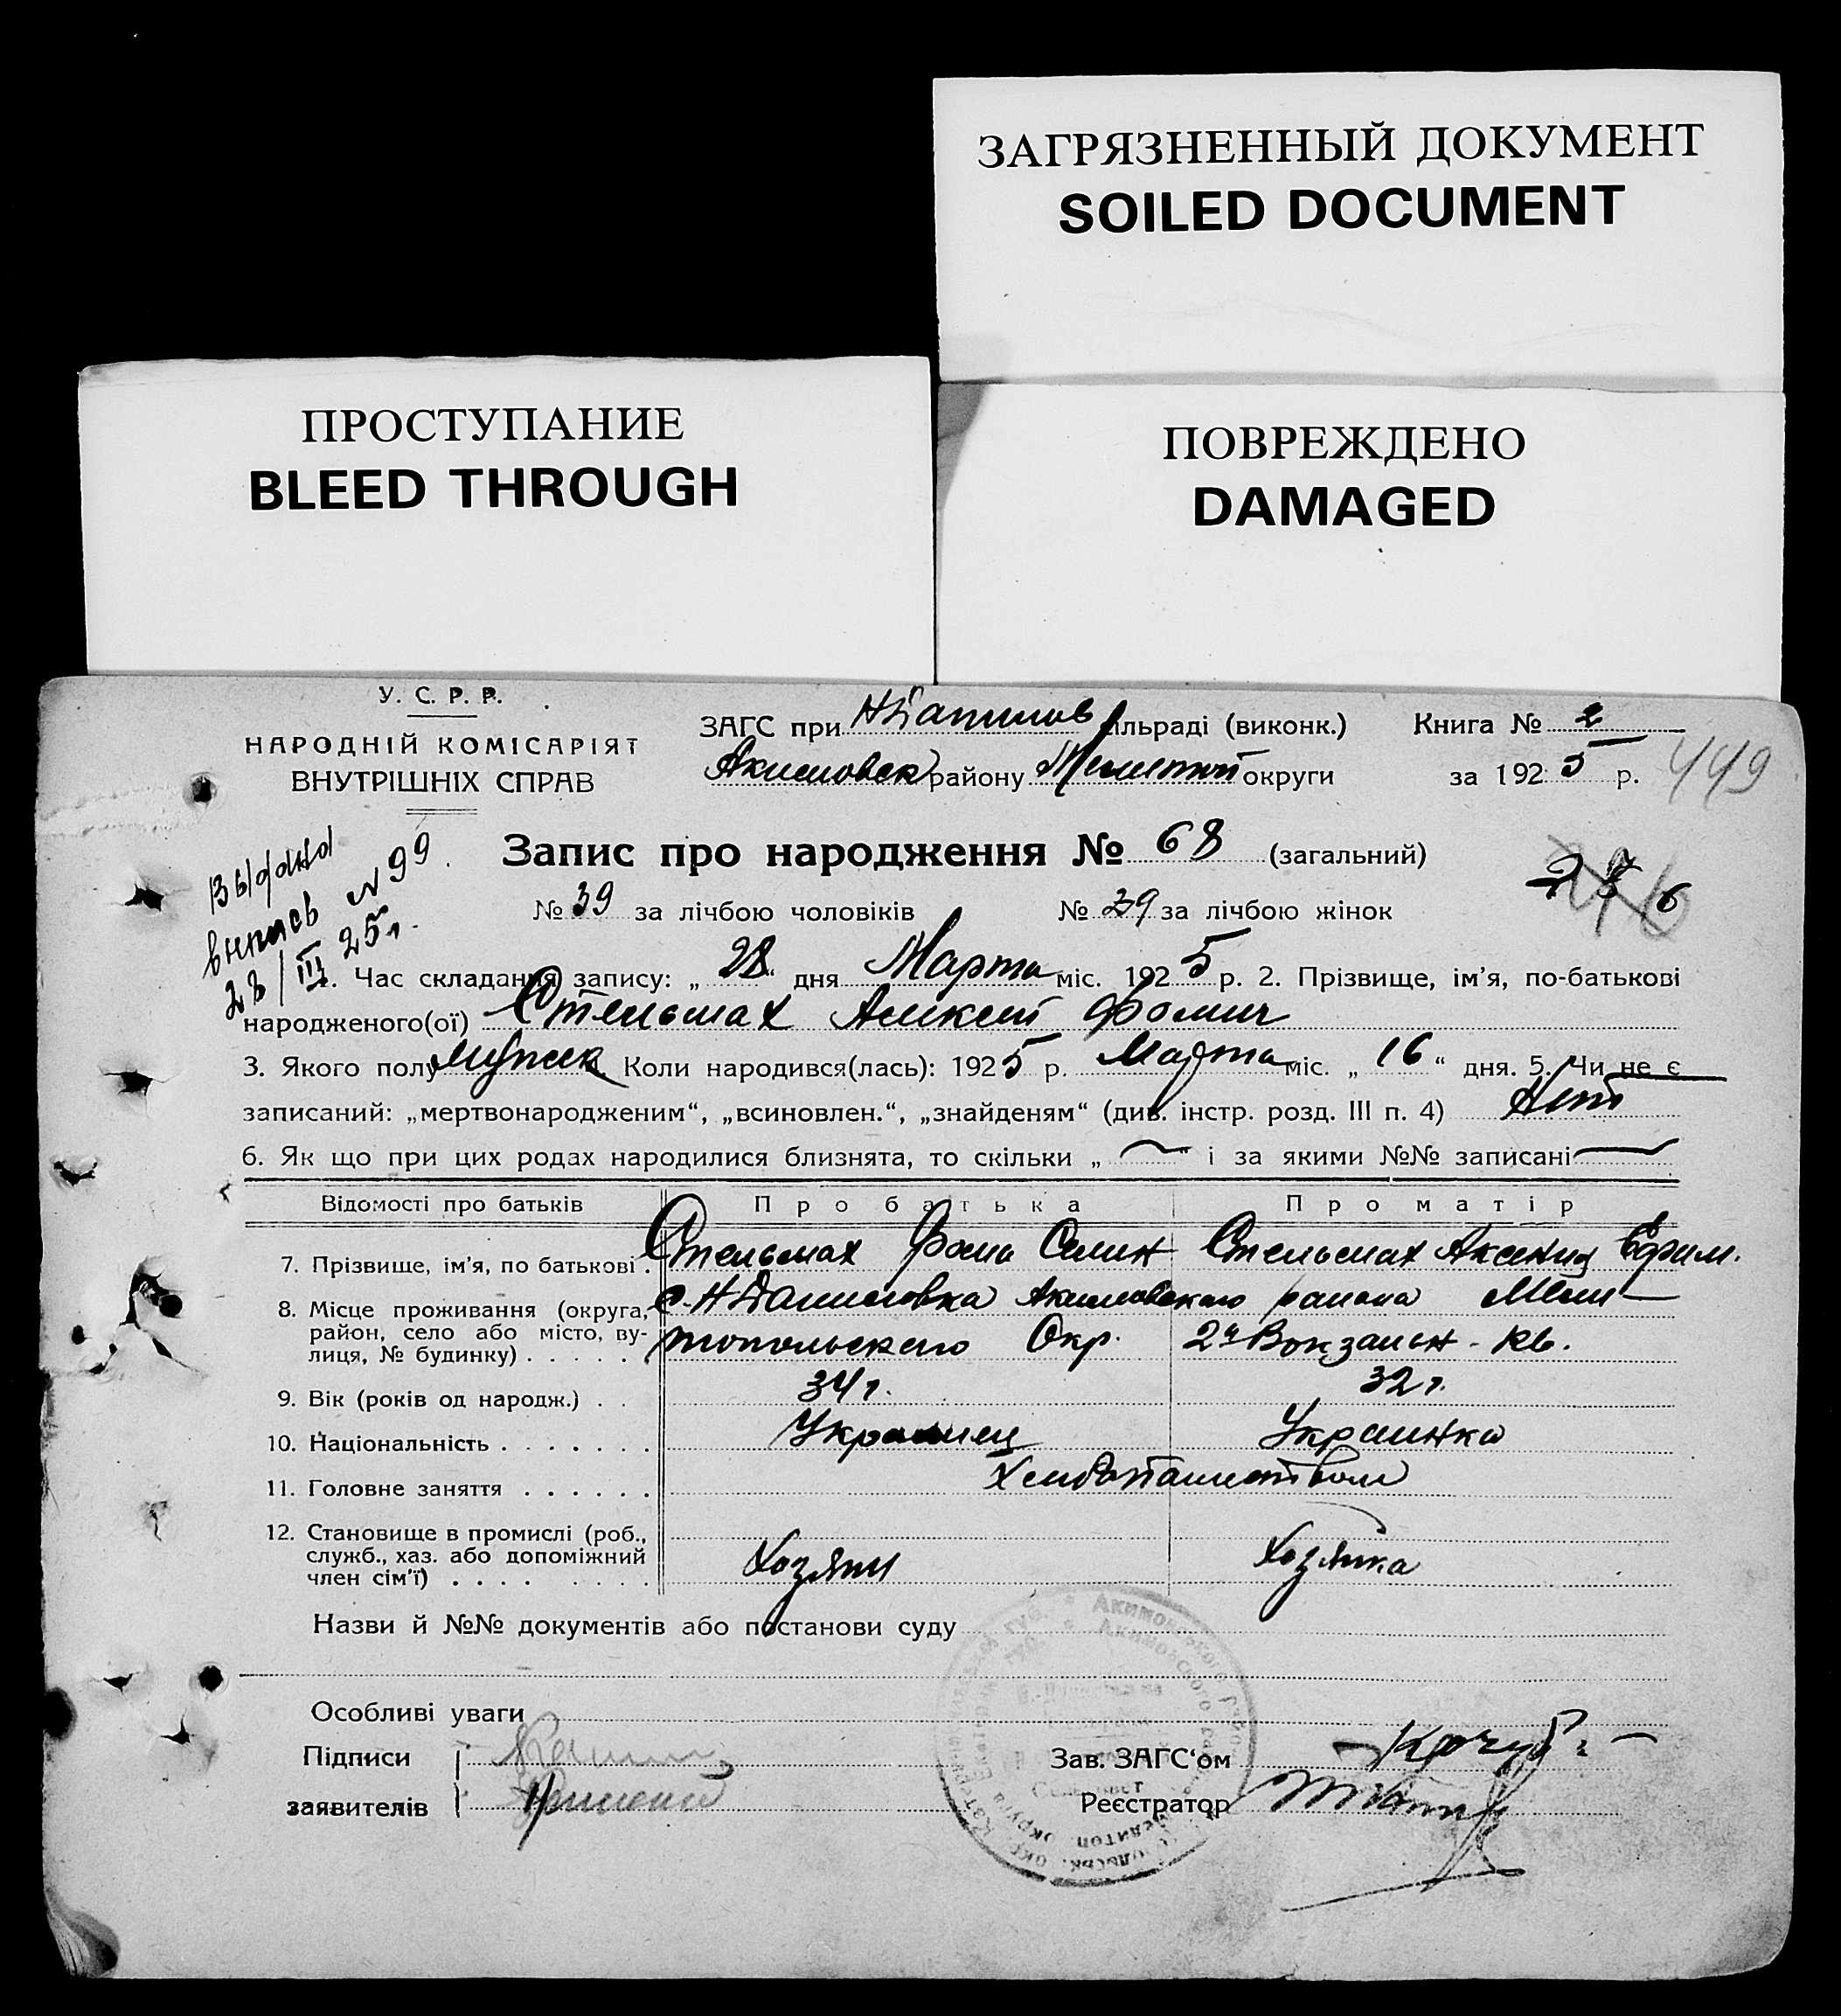 ЗАГРЯЗНЕННЫЙ ДОКУМЕНТ
SOILED DOCUMENT
ПРОСТУПАНИЕ
BLEED THROUGH
ПОВРЕЖДЕНО
DAMAGED
У. С. Р. Р.
НАРОДНІЙ КОМІСАРІЯТ
ВНУТРІШНІХ СПРАВ
ЗАГС при НДанилов сільраді (виконк.) Книга № 2
Акимовск району Мелитоп округи за 1925 р.
449
Запис про народження № 68 (загальний)
276
№ 39 за лічбою чоловіків № 29 за лічбою жінок
Выдана
выпись № 99
28/III 25г.
1. Час складання запису: „28“ дня Марта міс. 1925 р. 2. Прізвище, ім'я, по-батькові
народженого(ої) Стельмах Алексей Фомич
3. Якого полу Мужск Коли народився(лась): 1925 р. Марта міс. „16“ дня. 5. Чи не є
записаний: „мертвонародженим“, „всиновлен.“, „знайденям“ (див. інстр. розд. III п. 4) Нет
6. Як що при цих родах народилися близнята, то скільки „ “ і за якими №№ записані
Відомості про батьків Про батька Про матір
7. Прізвище, ім'я, по батькові . Стельмах Фома Семин Стельмах Аксения Ефим.
8. Місце проживання (округа, район, село або місто, вулиця, № будинку) . . . . . с. НДаниловка Акимовского района Мели-
топольского Окр. 2й Вокзальн. кв.
9. Вік (років од народж.) . . 34 г. 32 г.
10. Національність . . . . . . . Украинец Украинка
11. Головне заняття . . . . . . Хлебопашеством
12. Становище в промислі (роб.,
служб., хаз. або допоміжний
член сім'ї) . . . . . . . . Хозяин Хозяйка
Назви й №№ документів або постанови суду
Особливі уваги
Підписи
заявителів
Зав. ЗАГС'ом
Реєстратор